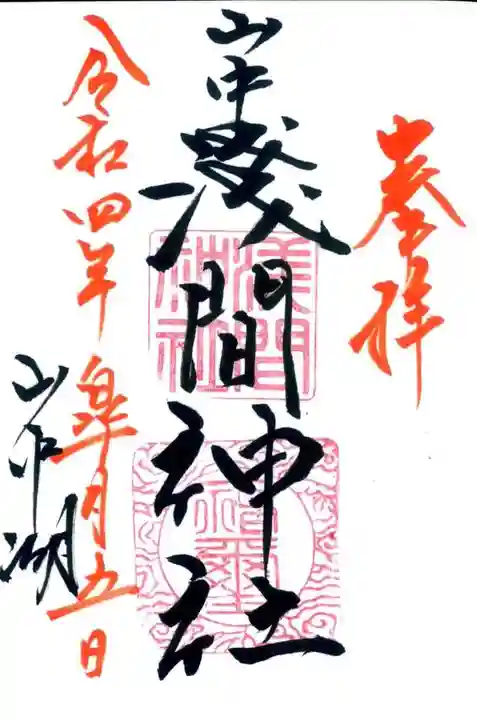 奉拝
山中
淺間神社
浅間
神社
令和四年皐月五日
山中湖